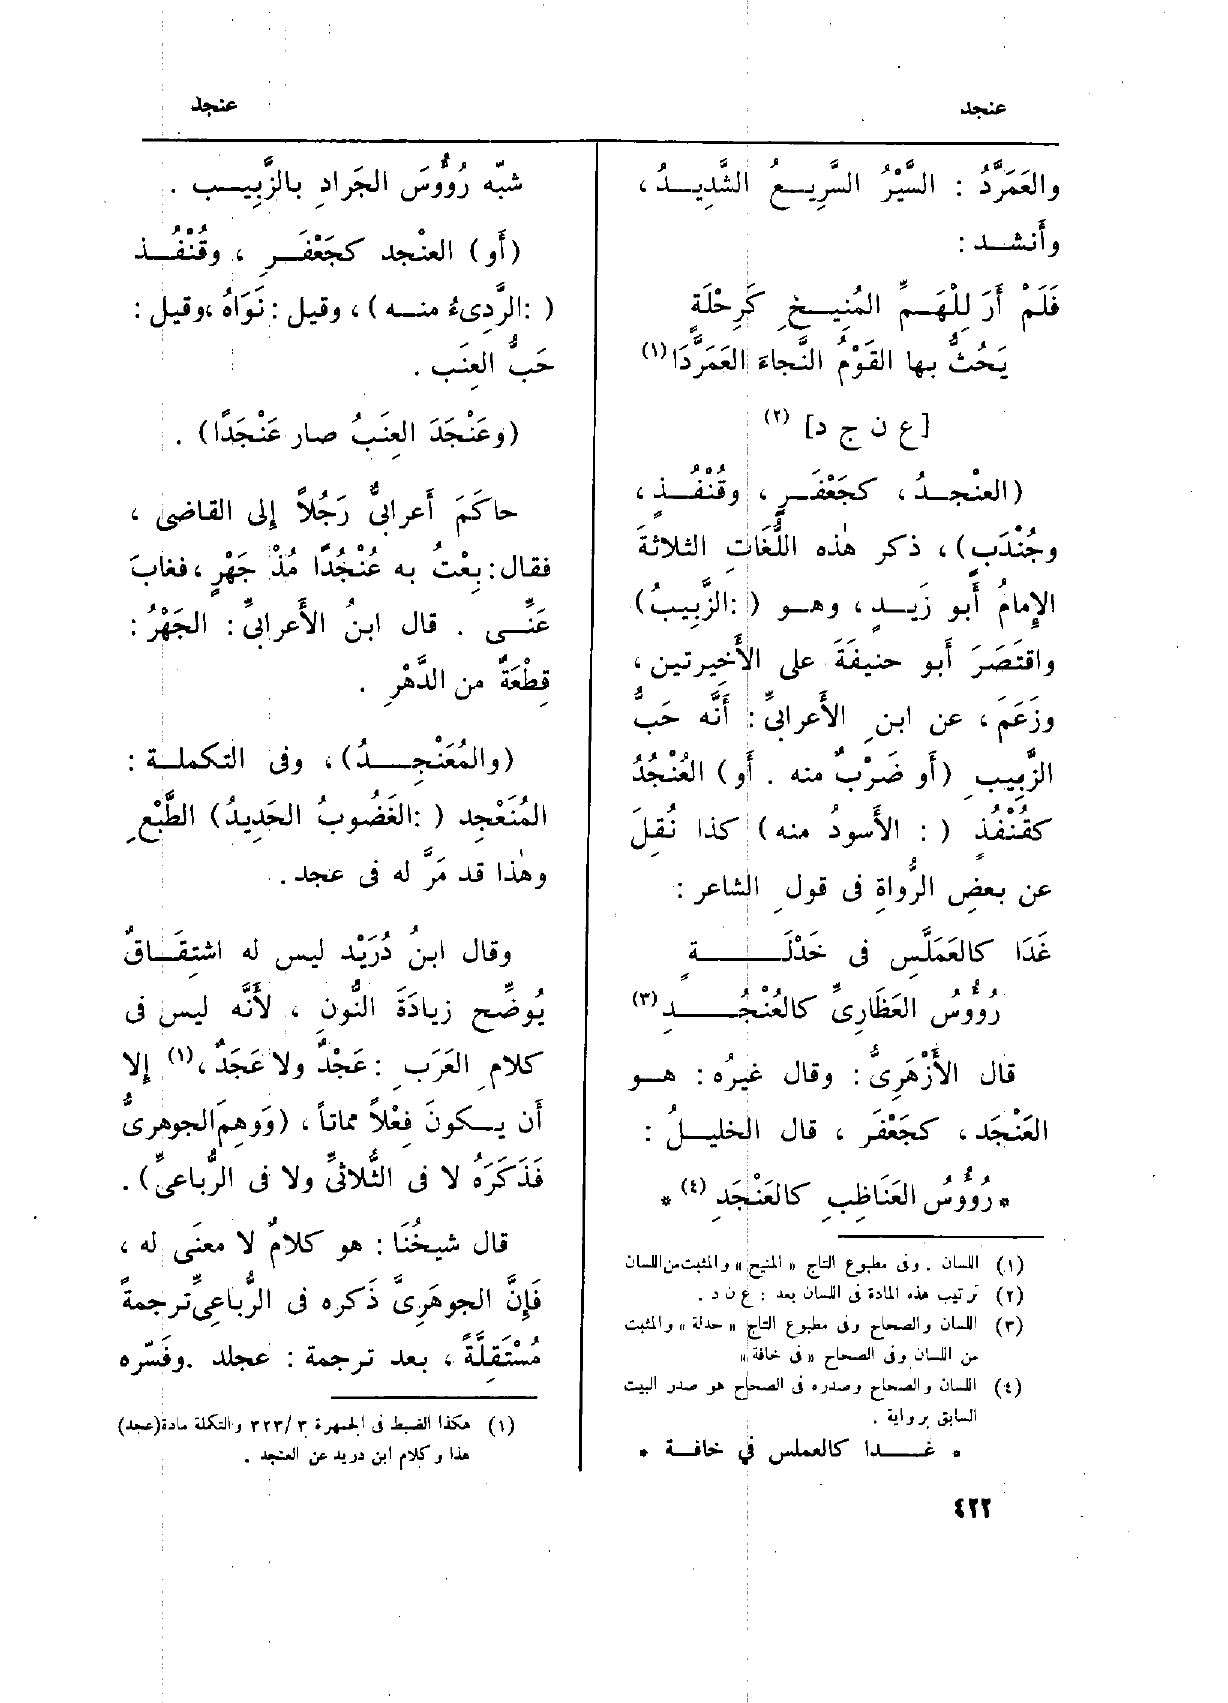 عنجد
عنجد
والعَمَرَّدُ : السَّيْرُ السَّرِيعُ الشَّدِيدُ ،
وأَنشد :
فَلَمْ أَرَ لِلْهَمِّ المُنِيخِ كَرِحْلَةٍ
يَحُثُّ بها القَوْمُ النَّجاءَ العَمَرَّدَا (١)
[ع ن ج د] (٢)
(العنْجدُ ، كجَعْفَرٍ ، وقُنْفُذٍ ،
وجُنْدَبٍ) ، ذكر هٰذه اللُّغَاتِ الثلاثةَ
الإِمامُ أَبو زَيدٍ ، وهو ( :الزَّبِيبُ)
واقتَصَرَ أَبو حنيفَةَ على الأَخِيرتين ،
وزَعَمَ ، عن ابنِ الأَعرابىِّ : أَنَّه حَبُّ
الزَّبِيبِ (أَو ضَرْبٌ منه . أَو) العُنْجُدُ
كقُنْفُذٍ ( : الأَسودُ منه) كذا نُقِلَ
عن بعضِ الرُّواةِ فى قولِ الشاعر :
غَدَا كالعَمَلَّسِ فى خَدْلَةٍ
رُؤُوسُ العَظَارِىِّ كالعُنْجُدِ (٣)
قال الأَزْهَرِىُّ : وقال غيرُه : هو
العَنْجَد ، كجَعْفَر ، قال الخليلُ :
* رُؤُوسُ العَنَاظِبِ كالعَنْجَدِ (٤) *
(١) اللسان . وفى مطبوع التاج « المنيح » والمثبت من اللسان
(٢) ترتيب هذه المادة فى اللسان بعد : ع ن د .
(٣) اللسان والصحاح وفى مطبوع التاج « حدلة » والمثبت
من اللسان وفى الصحاح « فى خافة »
(٤) اللسان والصحاح وصدره فى الصحاح هو صدر البيت
السابق برواية .
* غدا كالعملس في خافة *
٤٢٢
شبّه رُؤُوسَ الجَرادِ بالزَّبِيب .
(أَو) العنْجد كجَعْفَرٍ ، وقُنْفُذ
( :الرَّدِىءُ منه) ، وقيل : نَوَاهُ ، وقيل :
حَبُّ العِنَب .
(وعَنْجَدَ العِنَبُ صار عَنْجَدًا) .
حاكَمَ أَعرابىٌّ رَجُلاً إِلى القاضى ،
فقال : بِعْتُ به عُنْجُدًا مُذْ جَهْرٍ ، فغابَ
عَنِّى . قال ابنُ الأَعرابىِّ : الجَهْرُ :
قِطْعَةٌ من الدَّهْرِ .
(والمُعَنْجِدُ) ، وفى التكملة :
المُتَعْجِد ( :الغَضُوبُ الحَدِيدُ) الطَّبْعِ
وهٰذا قد مَرَّ له فى عجد .
وقال ابنُ دُرَيْد ليس له اشتِقَاقٌ
يُوضِّح زيادَةَ النُّونِ ، لأَنَّه ليس فى
كلامِ العَرَبِ : عَجْدٌ ولا عَجَدٌ ، (١) إِلا
أَن يكونَ فِعْلاً مماتاً ، (وَوهِمَ الجوهرىُّ
فَذَكَرَهُ لا فى الثُّلاثىِّ ولا فى الرُّباعىِّ) .
قال شيخُنَا : هو كلامٌ لا معنَى له ،
فَإِنَّ الجوهَرِىَّ ذكره فى الرُّباعىِّ ترجمةً
مُسْتَقِلَّةً ، بعد ترجمة : عجلد . وفَسّره
(١) هكذا الضبط فى الجمهرة ٣٢٣/٣ والتكملة مادة (عجد)
هذا وكلام ابن دريد عن العنجد .